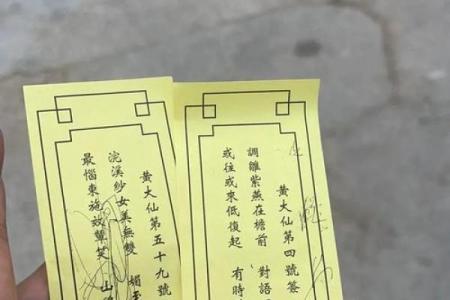 黃大仙第四號簽
調雛紫燕在檐前 對語
或往或來低復起 有時
黃大仙第五十九號
浣溪紗女美無雙 媚
最惱東施效顰笑 山